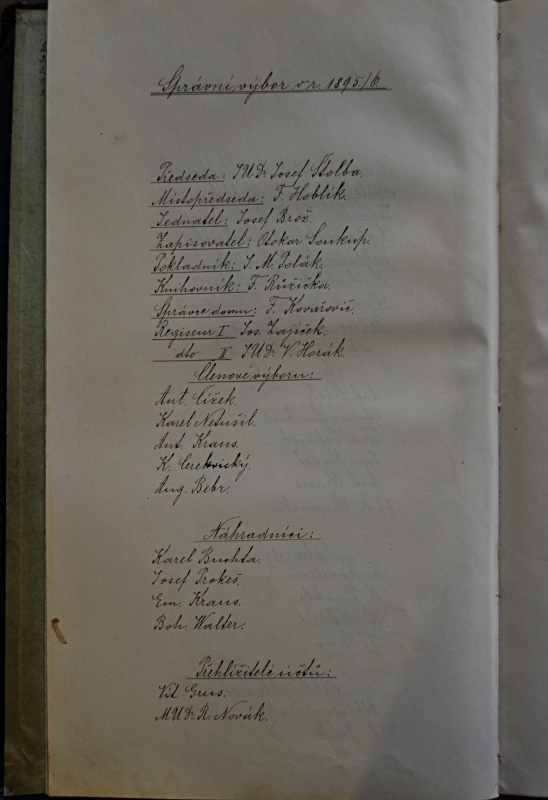 Správní výbor v r. 1895/6.
Předseda: JUDr Josef Štolba.
Místopředseda: F. Hoblík.
Jednatel: Josef Brož.
Zapisovatel: Otokar Soukup.
Pokladník: J. M. Polák.
Knihovník: F. Růžička.
Správce domu: F. Kovařovič.
Regiseur I. Jos. Zajíček.
dto II JUDr V. Horák.
Členové výboru:
Ant. Čížek.
Karel Netušil.
Ant. Kraus.
K. Cerekvický.
Aug. Bebr.
Náhradníci:
Karel Buchta.
Josef Prokeš.
Em. Kraus.
Boh. Walter.
Přehlížitelé účtů:
Vít Grus.
MUDr. R. Novák.